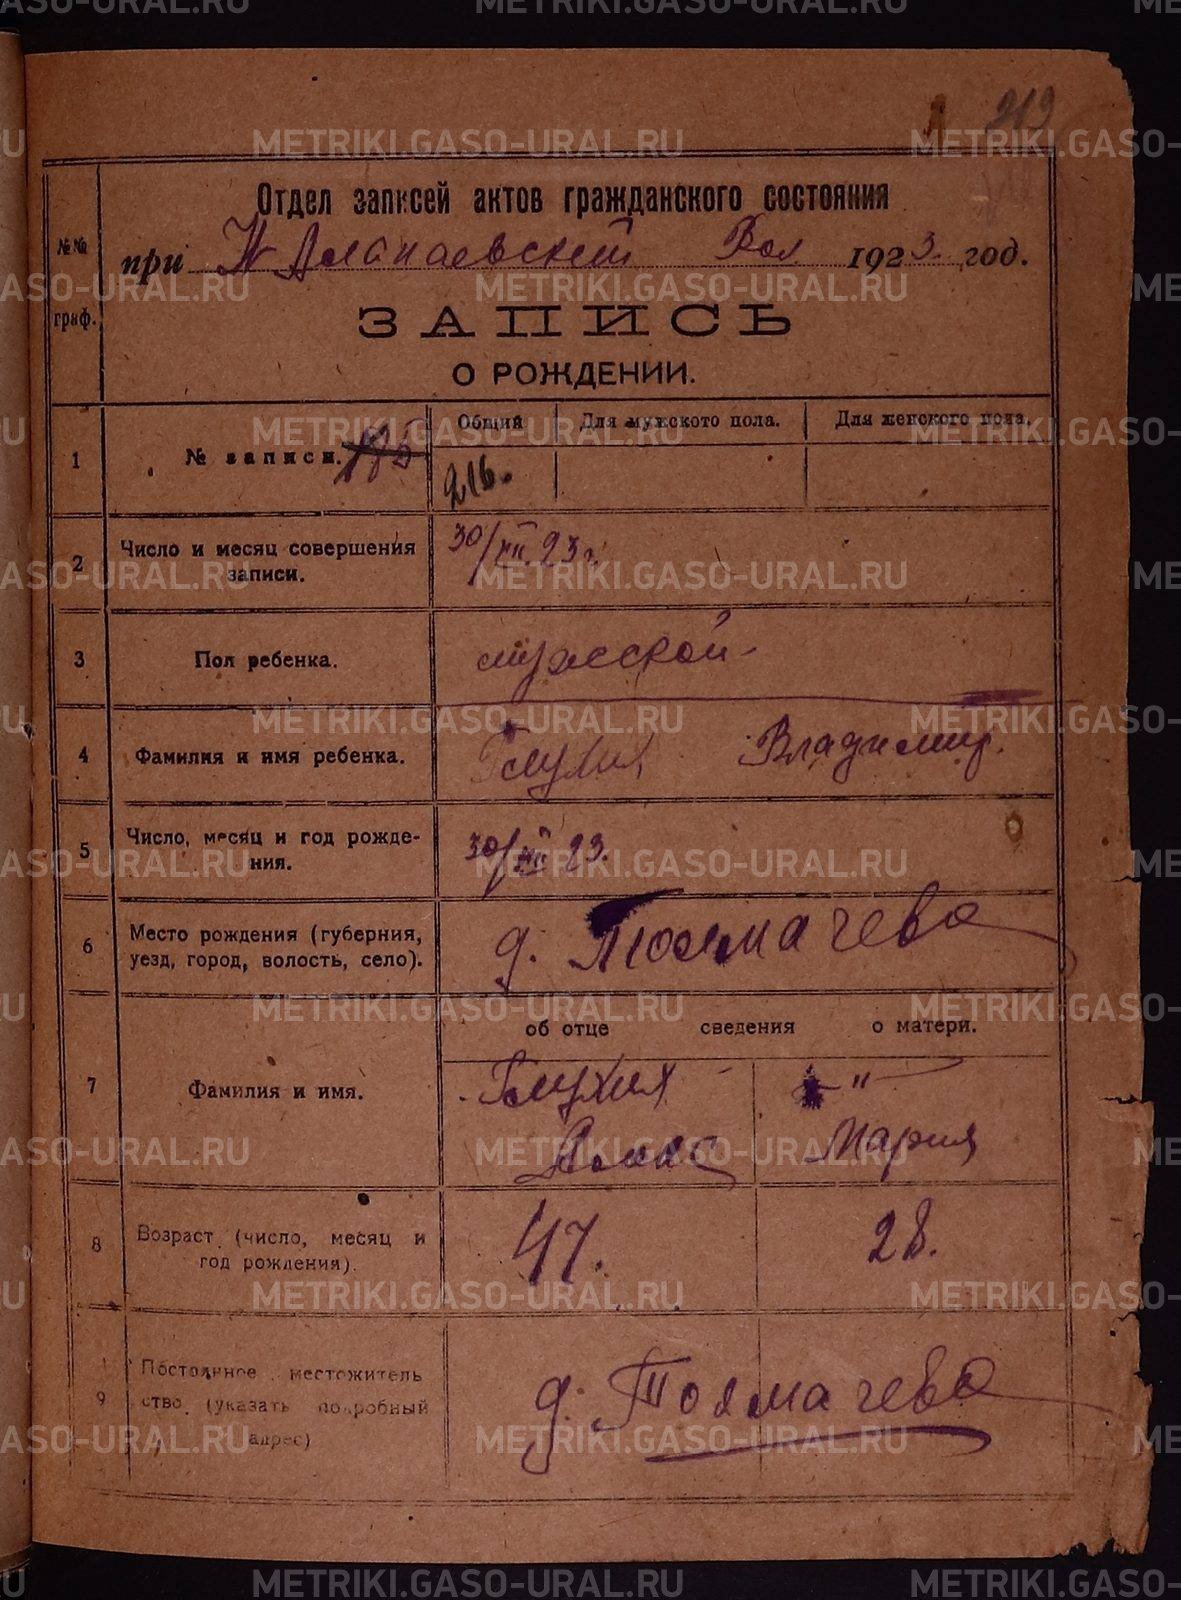 212
Отдел записей актов гражданского состояния
при Н Алапаевский Вол 1923. год.
№№ граф.
ЗАПИСЬ
О РОЖДЕНИИ.
1 № записи. 185 Общий Для мужского пола. Для женского пола.
216.
2 Число и месяц совершения записи. 30/XII.23г.
3 Пол ребенка. мужской
4 Фамилия и имя ребенка. Глухих Владимир.
5 Число, месяц и год рождения. 30/XII 23.
6 Место рождения (губерния, уезд, город, волость, село). д. Толмачева
об отце сведения о матери.
7 Фамилия и имя. Глухих — "
Мария
8 Возраст (число, месяц и год рождения). 47. 28.
9 Постоянное местожительство (указать подробный адрес) д. Толмачева
METRIKI.GASO-URAL.RU